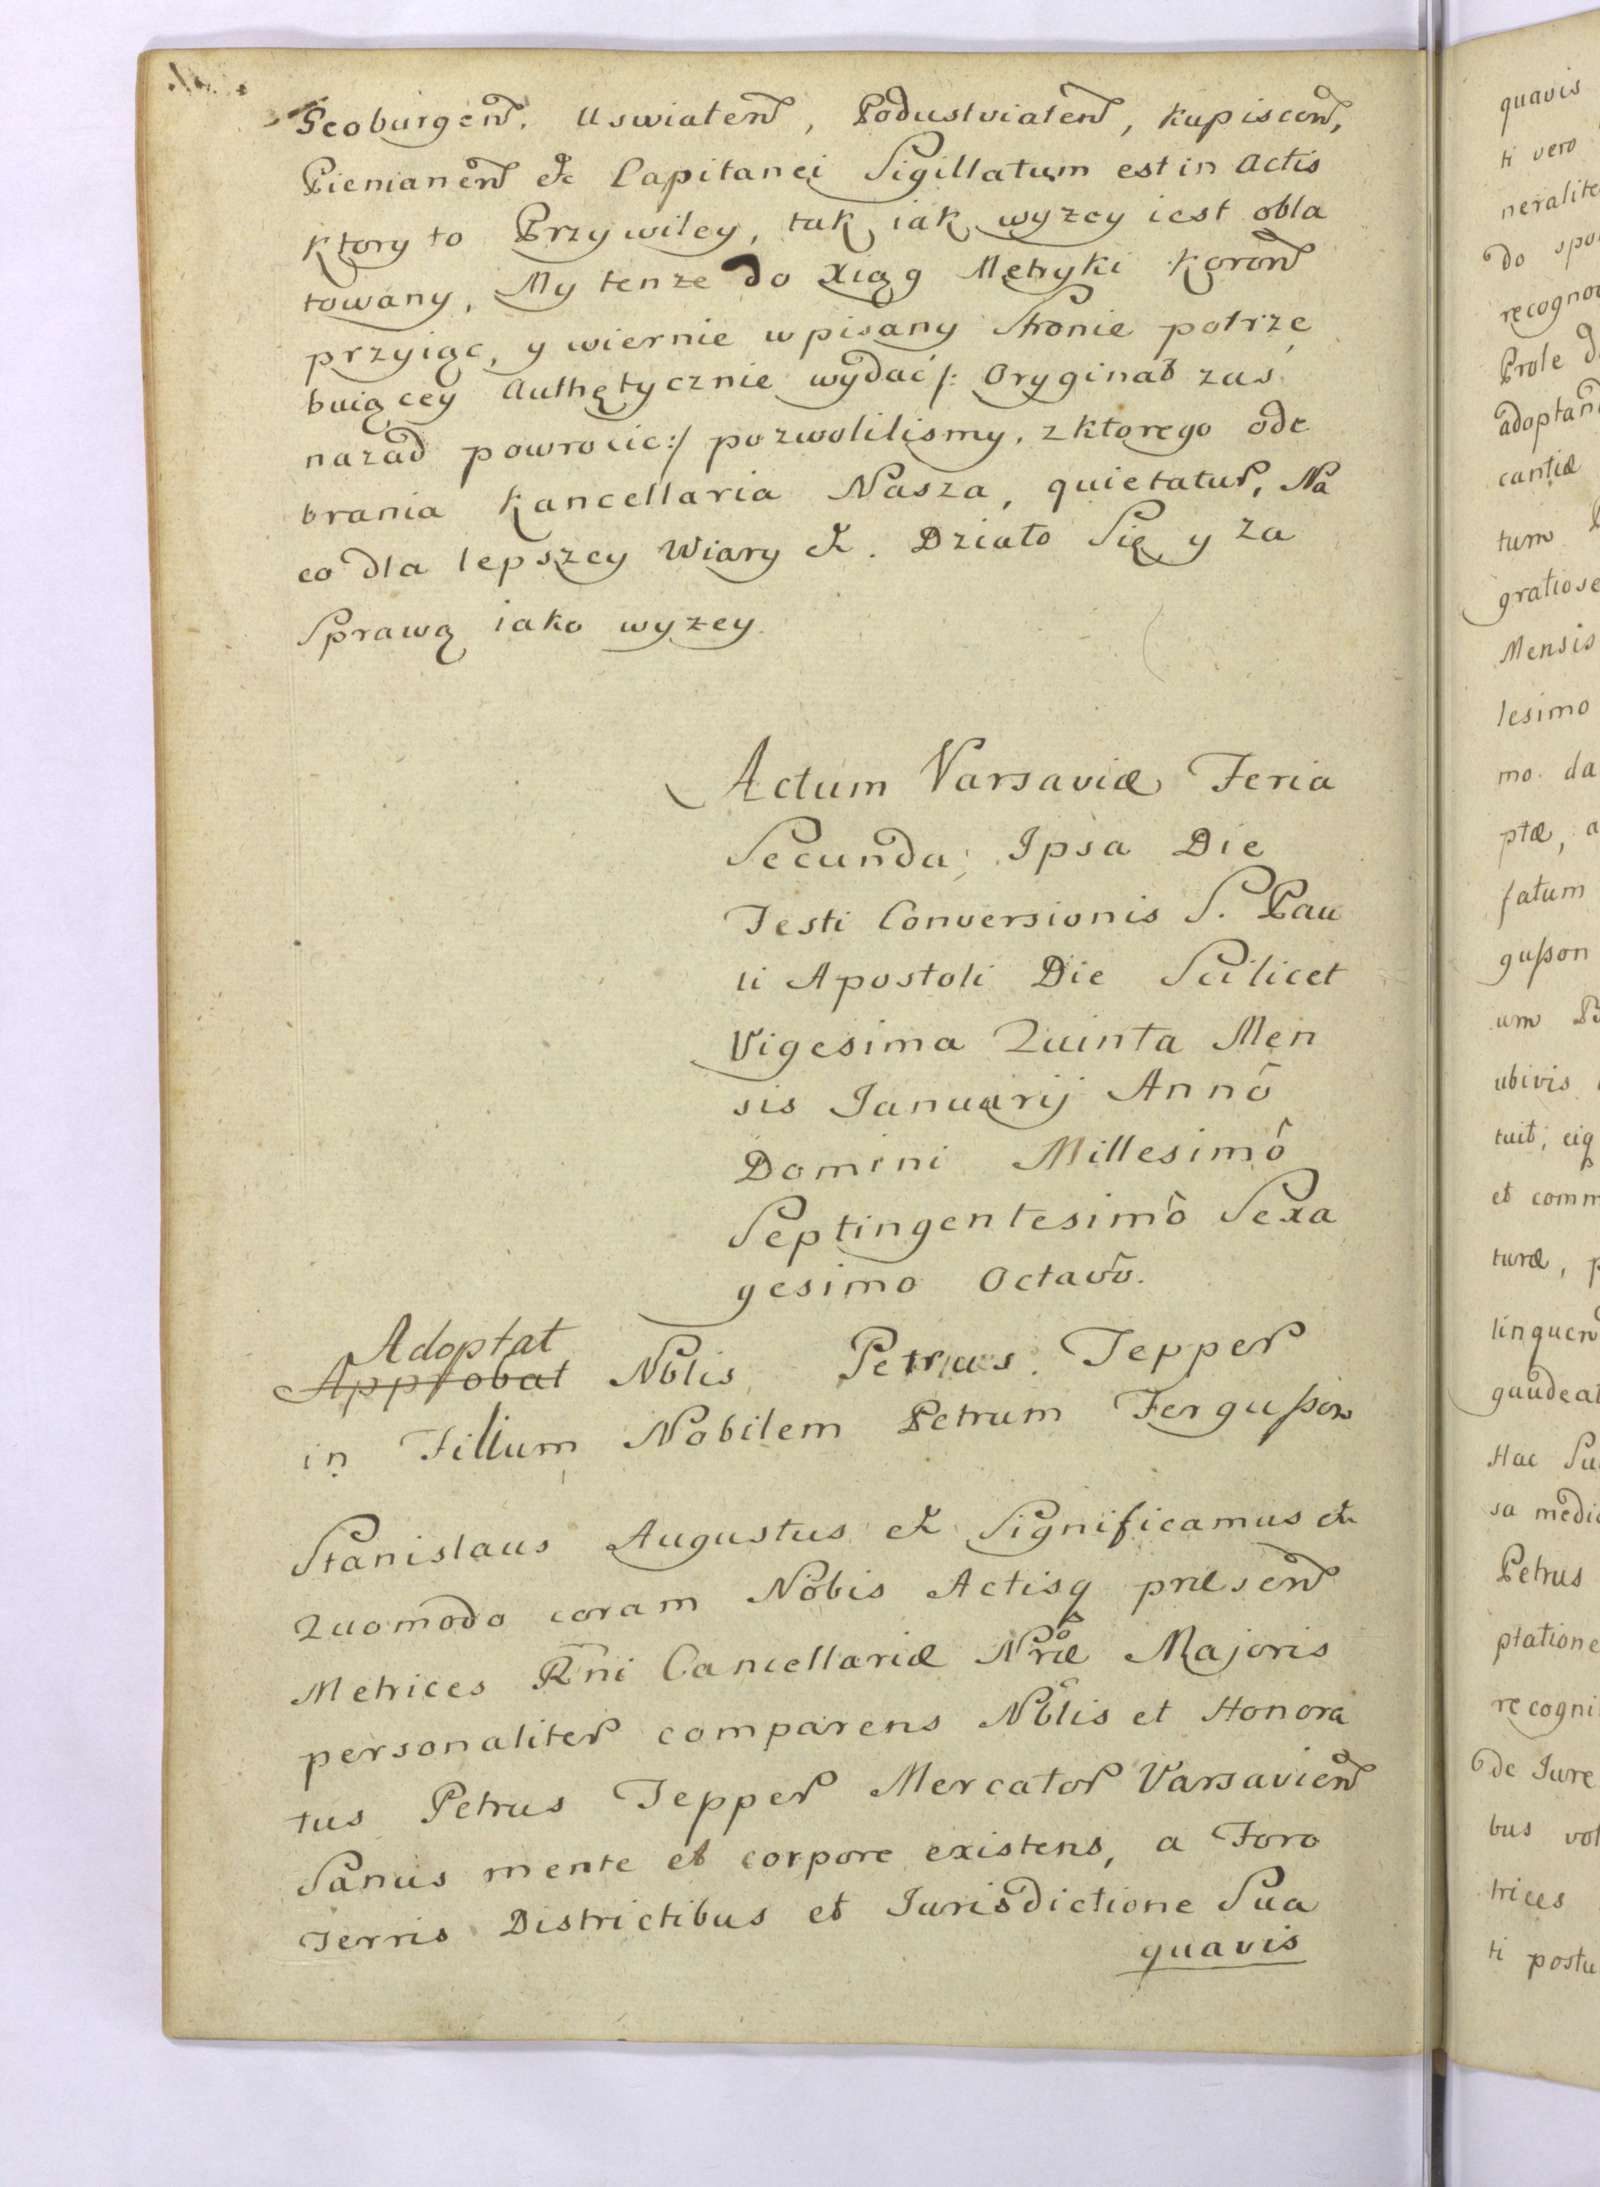 Geoburgen. Uswiaten, Podusviaten, Kupiscen,
Pienianen &c Capitanei Sigillatum est in Actis
ktory to Przywiley, tak iak wyzey iest obla
towany, My tenze do Xiąg Metryki Koron
przyiąc, y wiernie wpisany Stronie potrze
buiącey Authętycznie wydać /: Oryginał zas
nazad powrocic :/ pozwolilismy, z ktorego ode
brania Kancellaria Nasza, quietatur, Na
co dla lepszey Wiary &c. Działo Się y za
Sprawą iako wyzey
Actum Varsaviæ Feria
Secunda, Ipsa Die
Festi Conversionis S. Pau
li Apostoli Die Scilicet
Vigesima Quinta Men
sis Januarij Annô
Domini Millesimô
Septingentesimô Sexa
gesimo Octavô.
Adoptat
Approbat Nblis Petrus Tepper
in Filium Nobilem Petrum Fergusson
Stanislaus Augustus &c Significamus &c
Quomodo coram Nobis Actisq præsen
Metrices Rni Cancellariæ Nræ Majoris
personaliter comparens Nblis et Honora
tus Petrus Tepper Mercator Varsavien
Sanus mente et corpore existens, a Foro
Terris Districtibus et Jurisdictione Sua
quavis
quavis
ti vero
do
Mensis
lesimo
mo. da
ptæ, a
fatum
gusson
ubivis
turæ, p
Hac
Petrus
de Jure
trices